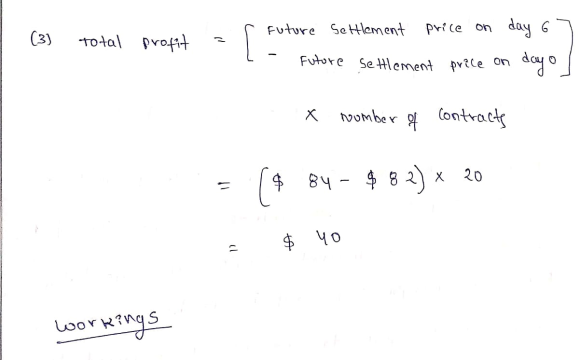 (3) Total profit = [ Future Settlement price on day 6
- Future Settlement price on day 0 ]
x number of contracts
= ($ 84 - $ 82) x 20
= $ 40
Workings